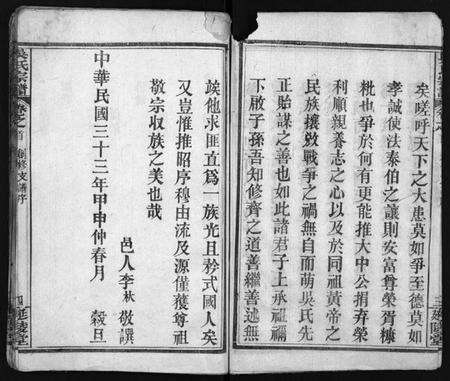 矣嗟呼天下之大患莫如爭至德莫如
孝誠使法泰伯之讓則安富尊榮胥糠
秕也爭於何有更能推大中公捐弃榮
利順親養志之心以及於同祖黃帝之
民族攘敓戰爭之禍無自而萌吳氏先
正貽謀之善也如此諸君子上承祖禰
下啟子孫吾知修齊之道善繼善述無
竢他求匪直爲一族光且矜式國人矣
豈僅惟推昭序穆由流及源僅獲尊祖
敬宗收族之美也哉
中華民國三十三年甲申仲春月 穀旦
邑人李秋敬譔
吳氏宗譜
卷之首
創修支譜序
四
延陵堂
三
延陵堂